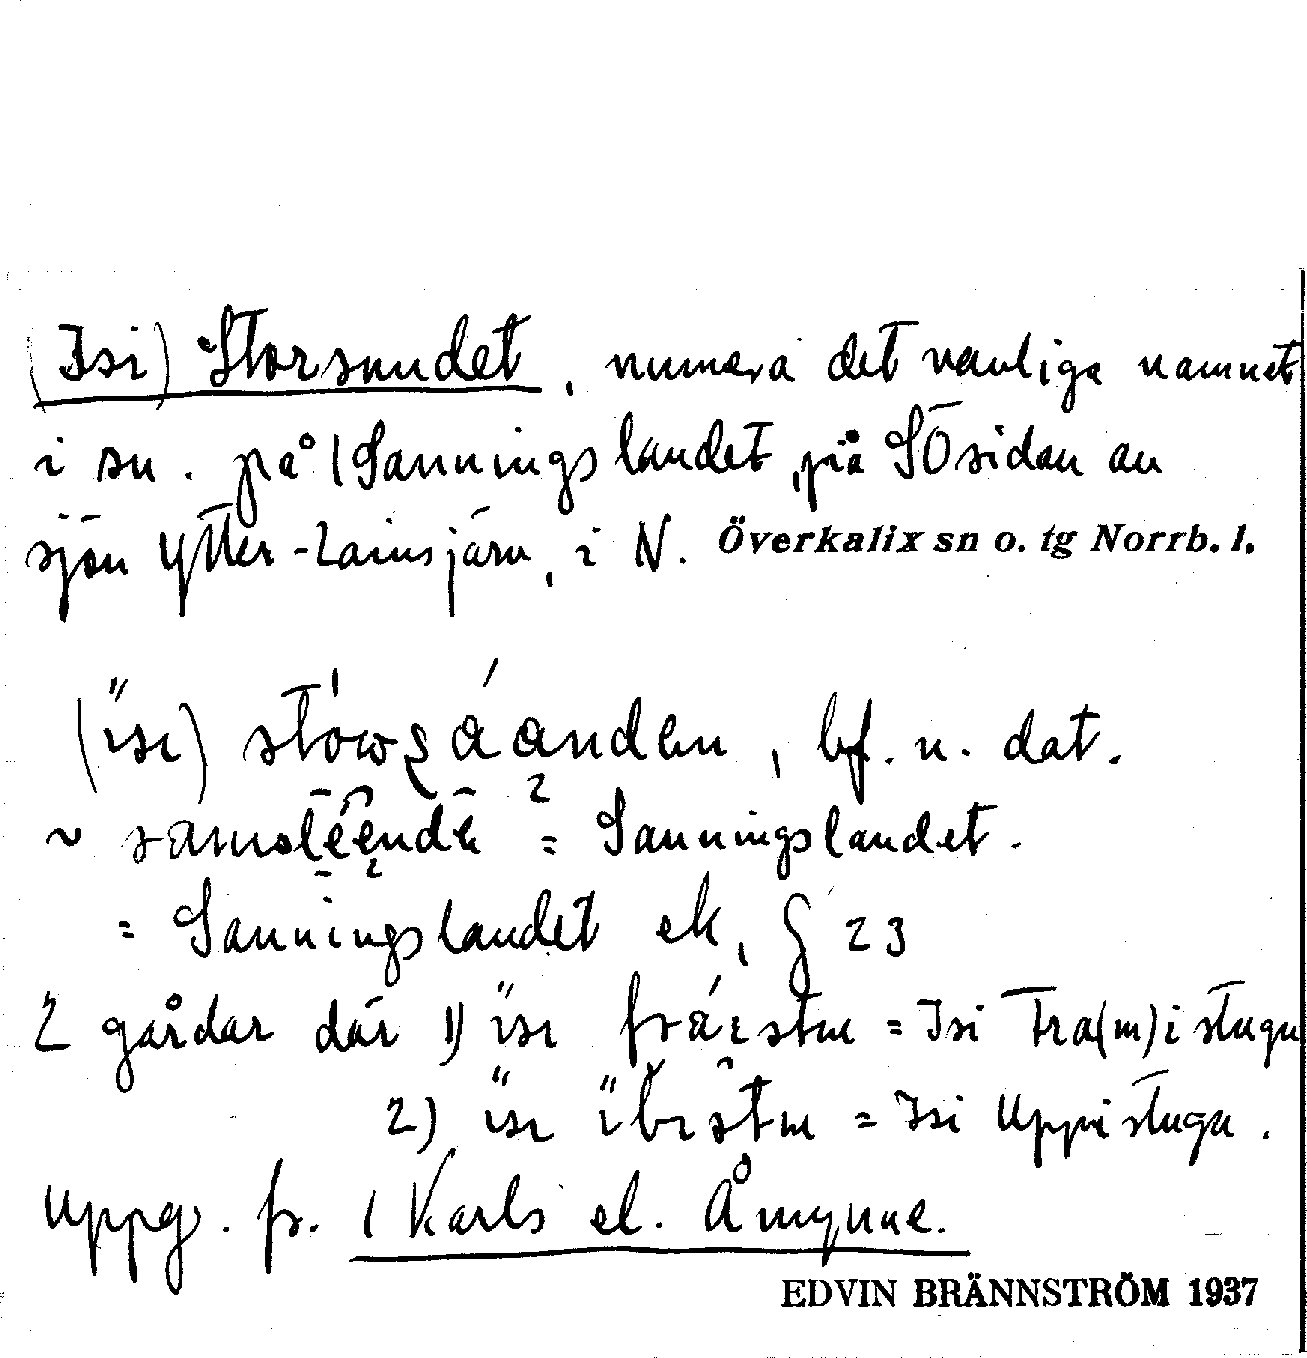 (Isi) Storsundet, numera det vanliga namnet
i sn. på /Sanningslandet, på SÖsidan av
sjön Ytter-Lainsjärv, i N. Överkalix sn o. tg Norrb. l.
(ĭsɩ) stówsáanden, bf. n. dat.
= Sanningslandet.
= Sanningslandet ek, § 23
2 gårdar där 1) ĭsɩ = Isi Fra(m)i stugu
2) ĭsɩ = Isi Uppi stugu.
Uppg. fr. / Karls el. Åmynne.
EDVIN BRÄNNSTRÖM 1937